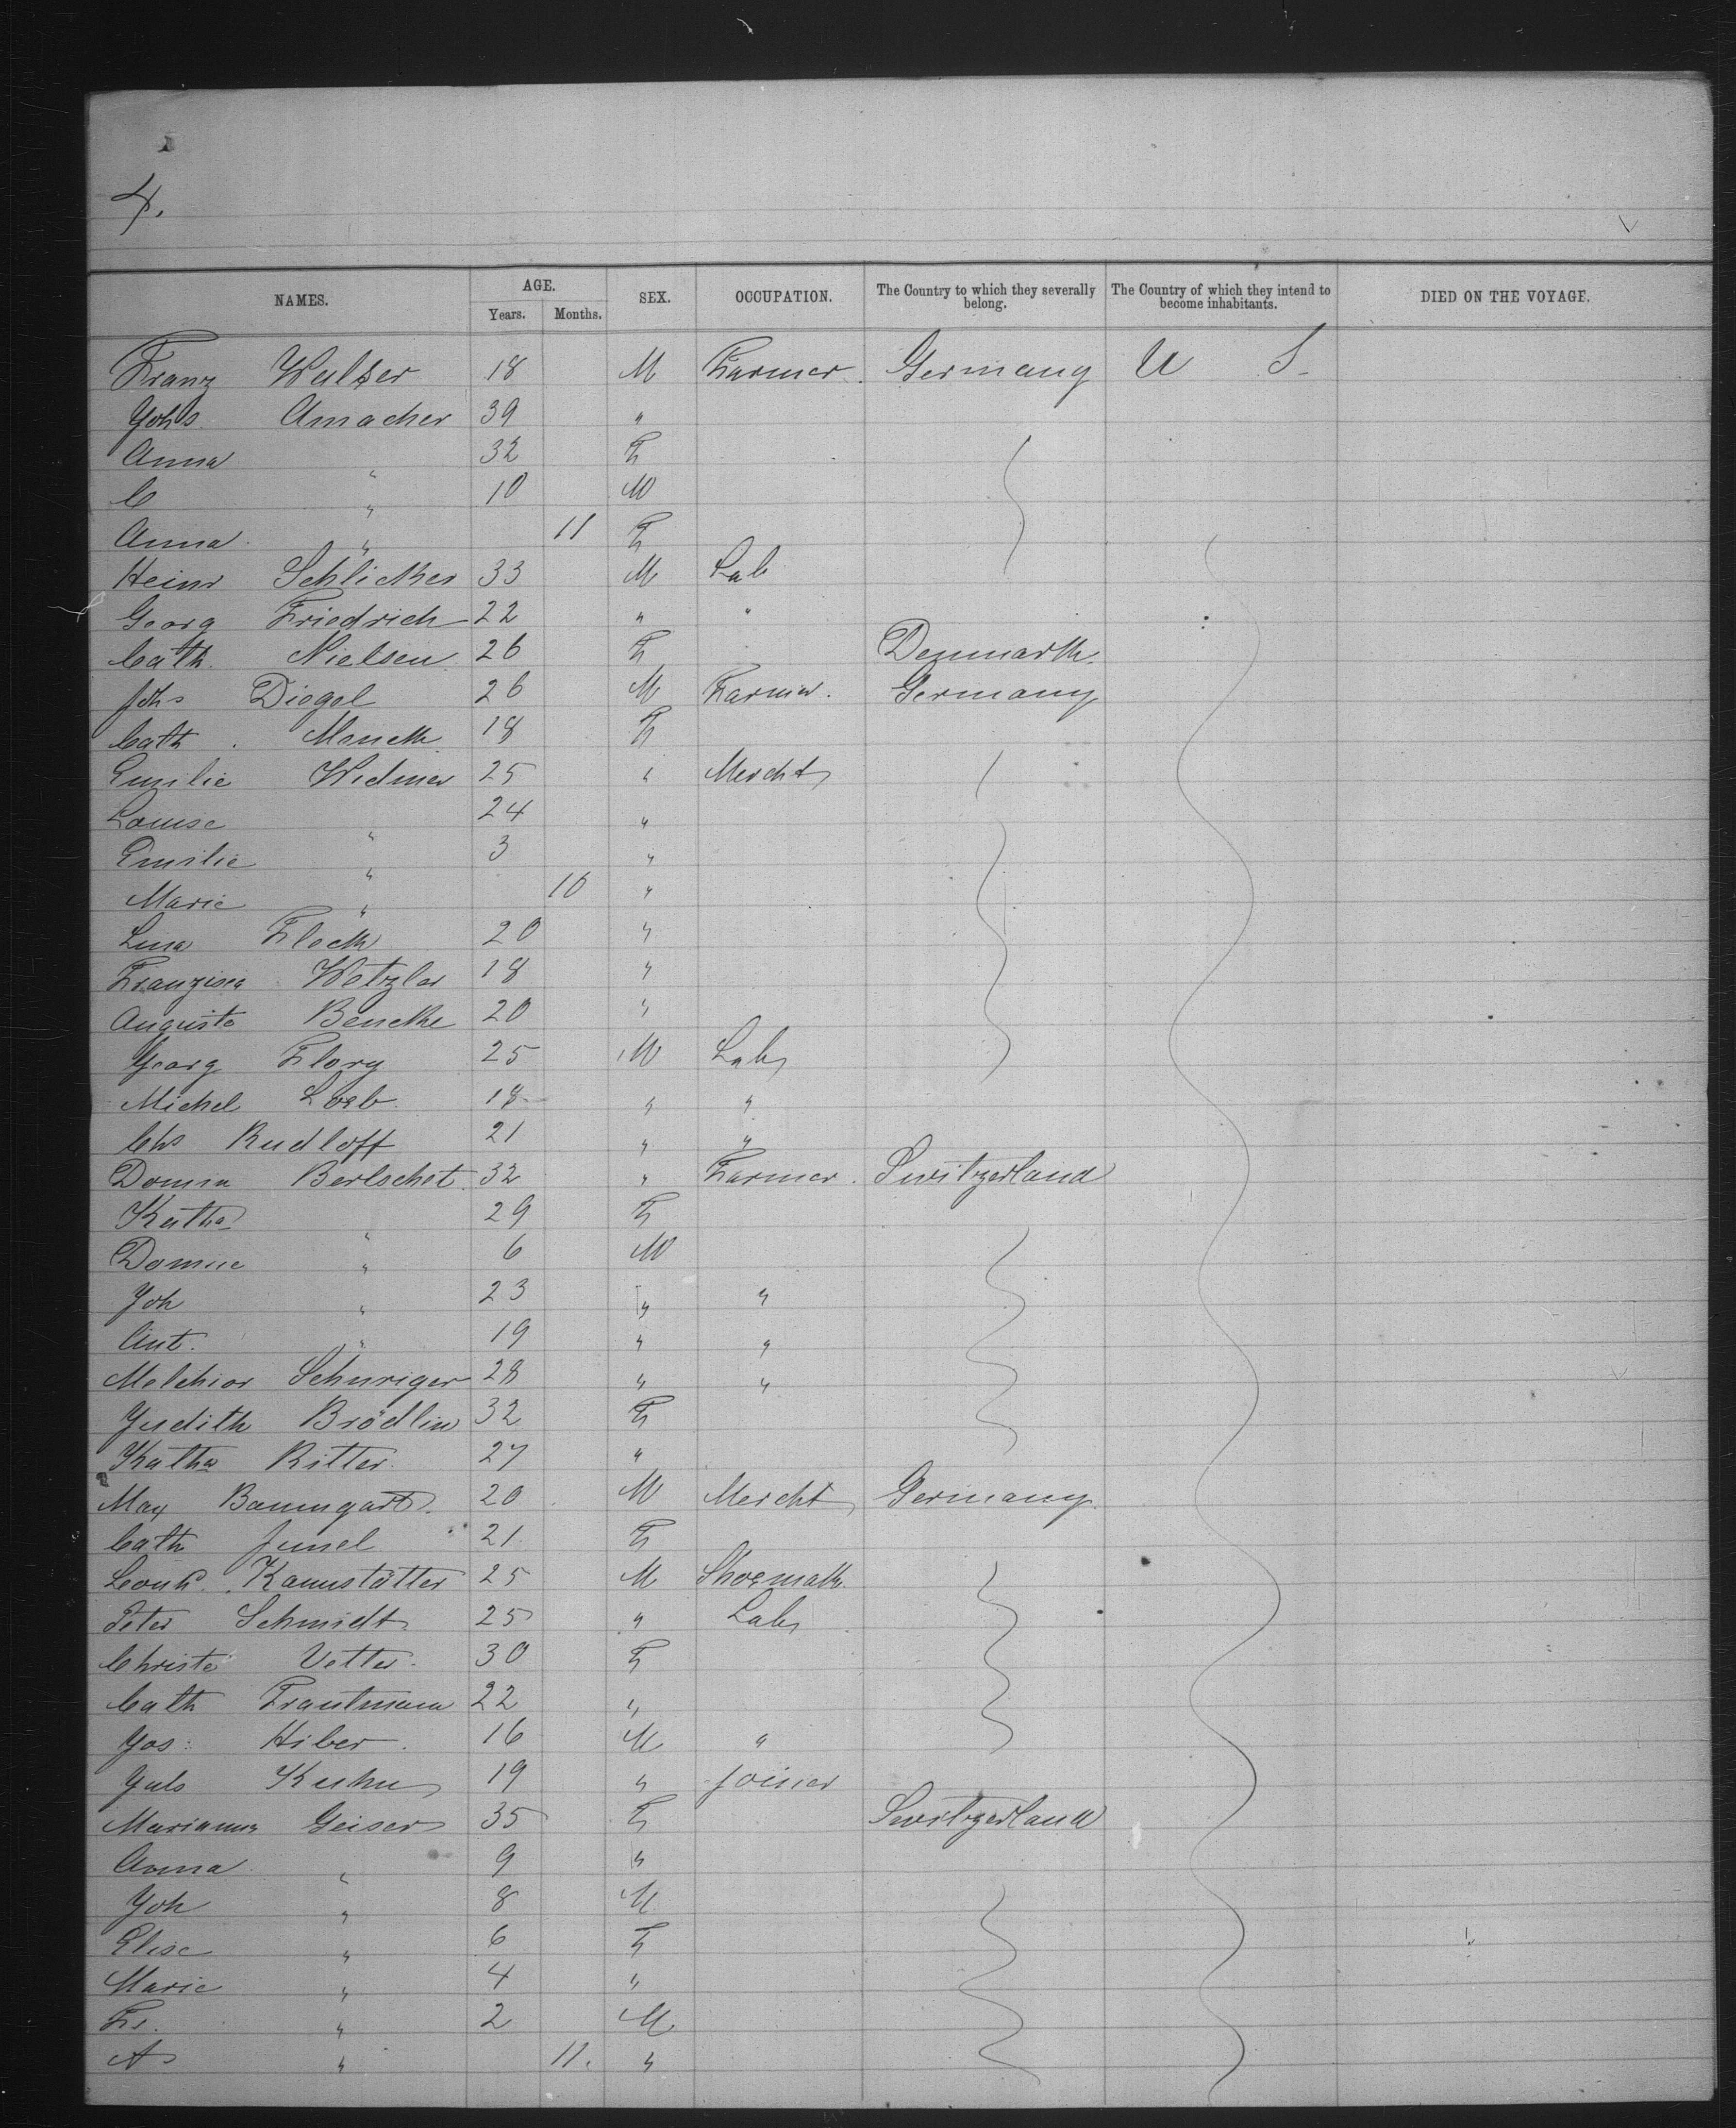 4.
NAMES. AGE. SEX. OCCUPATION. The Country to which they severally belong. The Country of which they intend to become inhabitants. DIED ON THE VOYAGE.
Years. Months.
Franz Walser 18 M Farmer. Germany U S.
Johs Amacher 39 "
Anna " 32 F
C " 10 M
Anna " 11 F
Heinr Schlicker 33 M Lab
Georg Friedrich 22 " "
Cath. Nielsen 26 F Denmark.
Johs Diegel 26 M Farmer. Germany
Cath. Menck 18 F
Emilie Widmer 25 " Mercht
Louise " 24 "
Emilie " 3 "
Marie " 10 "
Lina Flock 20 "
Franzisca Wetzler 18 "
Auguste Bencke 20 "
Georg Flory 25 M Lab
Michel Loeb 18 " "
Chs Rudloff 21 " "
Berlschet 32 " Farmer. Switzerland
Katha " 29 F
" 6 M
Joh " 23 " "
Ant. " 19 " "
Melchior 28 " "
Judith Brödlin 32 F
Katha Ritter 27 "
Max Baumgart 20 M Mercht Germany.
Cath Junel 21 F
Leonh. Kannstätter 25 M Shoemak
Peter Schmidt 25 " Lab
Christe Vetter 30 F
Cath Trautmann 22 "
Jos: Hiber 16 M "
Juls Kuhn 19 " Joiner
Marianna Geiser 35 F Switzerland
Anna " 9 "
Joh " 8 M
Elise " 6 F
Marie " 4 "
Fr. " 2 M
A " 11. "